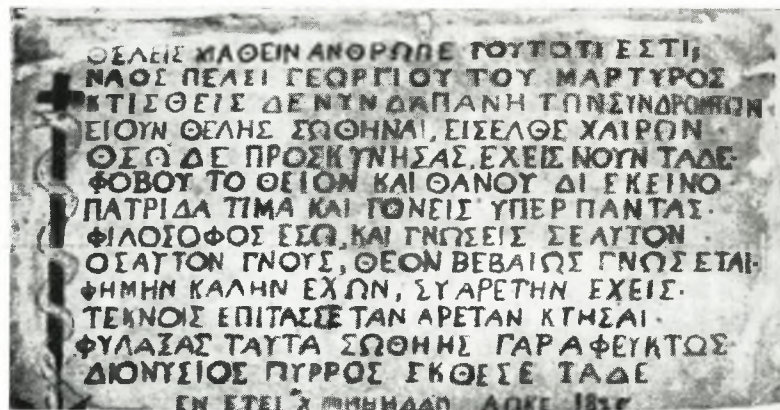 ΘΕΛΕΙΣ ΜΑΘΕΙΝ ΑΝΘΡΩΠΕ ΤΟΥΤΟ ΤΙ ΕΣΤΙ;
ΝΑΟΣ ΠΕΛΕΙ ΓΕΩΡΓΙΟΥ ΤΟΥ ΜΑΡΤΥΡΟΣ
ΚΤΙΣΘΕΙΣ ΔΕ ΝΥΝ ΔΑΠΑΝΗ ΤΩΝ ΣΥΝΔΡΟΜΗΤΩΝ
ΕΙ ΟΥΝ ΘΕΛΗΣ ΣΩΘΗΝΑΙ, ΕΙΣΕΛΘΕ ΧΑΙΡΩΝ
ΘΕΩ ΔΕ ΠΡΟΣΚΥΝΗΣΑΣ, ΕΧΕΙΣ ΝΟΥΝ ΤΑΔΕ·
ΦΟΒΟΥ ΤΟ ΘΕΙΟΝ ΚΑΙ ΘΑΝΟΥ ΔΙ ΕΚΕΙΝΟ
ΠΑΤΡΙΔΑ ΤΙΜΑ ΚΑΙ ΓΟΝΕΙΣ ΥΠΕΡ ΠΑΝΤΑΣ·
ΦΙΛΟΣΟΦΟΣ ΕΣΩ, ΚΑΙ ΓΝΩΣΕΙΣ ΣΕΑΥΤΟΝ
Ο ΣΑΥΤΟΝ ΓΝΟΥΣ, ΘΕΟΝ ΒΕΒΑΙΩΣ ΓΝΩΣΕΤΑΙ·
ΦΗΜΗΝ ΚΑΛΗΝ ΕΧΩΝ, ΣΥ ΑΡΕΤΗΝ ΕΧΕΙΣ·
ΤΕΚΝΟΙΣ ΕΠΙΤΑΣΣΕ ΤΑΝ ΑΡΕΤΑΝ ΚΤΗΣΑΙ·
ΦΥΛΑΞΑΣ ΤΑΥΤΑ ΣΩΘΗΗΣ ΓΑΡ ΑΦΕΥΚΤΩΣ·
ΔΙΟΝΥΣΙΟΣ ΠΥΡΡΟΣ ΕΚΘΕΣΕ ΤΑΔΕ
ΕΝ ΕΤΕΙ